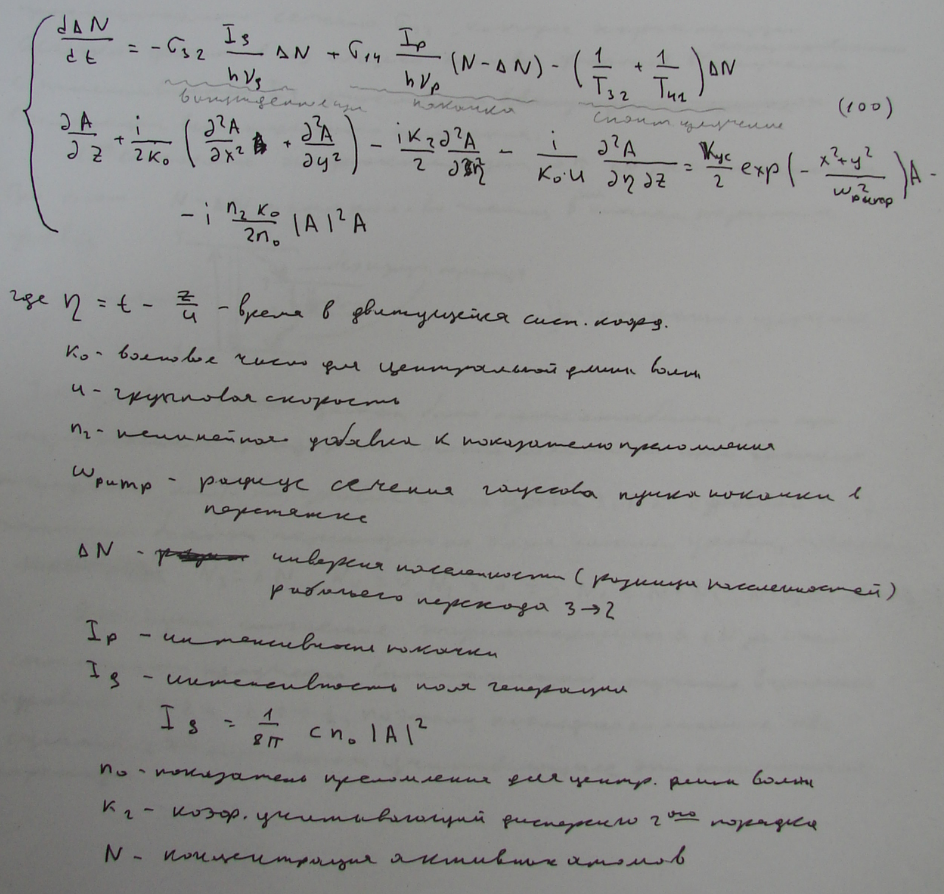 dΔN/dt = -σ₃₂ I₃/hν₃ ΔN + σ₁₄ Iₚ/hνₚ (N - ΔN) - (1/T₃₂ + 1/T₄₁) ΔN
накачка спонт излучение (100)
∂A/∂z + i/2к₀ (∂²A/∂x² + ∂²A/∂y²) - iк₂/2 ∂²A/∂η² - i/к₀·u ∂²A/∂η∂z = Kус/2 exp(- x²+y²/w²pump) A -
- i n₂к₀/2n₀ |A|²A
где η = t - z/u - время в движущейся сист. коорд.
к₀ - волновое число для центральной длины волны
u - групповая скорость
n₂ - нелинейная добавка к показателю преломления
wpump - радиус сечения гауссова пучка накачки в
перетяжке
ΔN - инверсия населенности (разница населенностей)
рабочего перехода 3→2
Iₚ - интенсивность накачки
I₃ - интенсивность поля генерации
I₃ = 1/8π c n₀ |A|²
n₀ - показатель преломления для центр. длины волны
к₂ - коэф. учитывающий дисперсию 2ого порядка
N - концентрация активных атомов